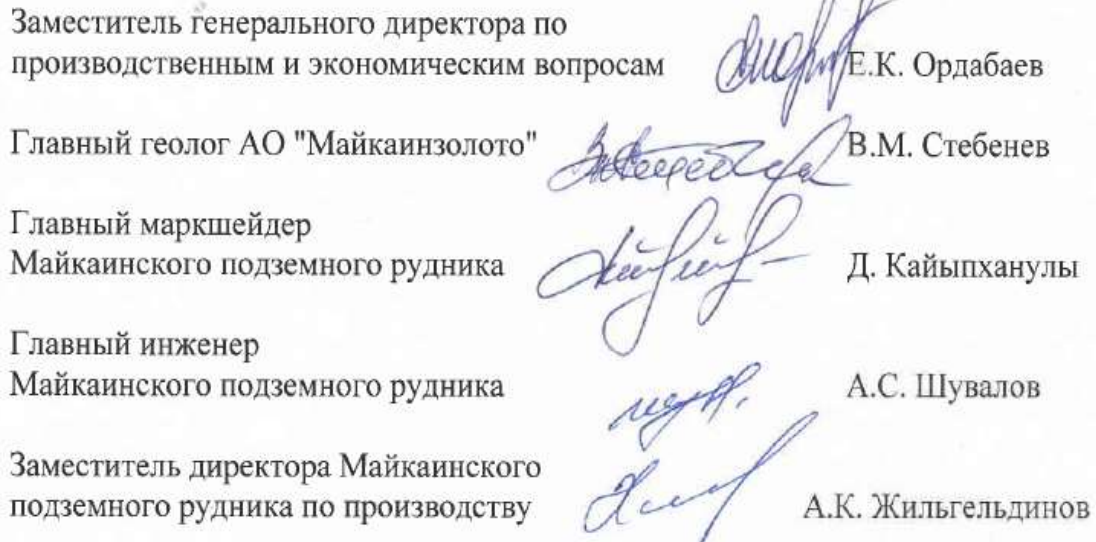 Заместитель генерального директора по
производственным и экономическим вопросам Е.К. Ордабаев
Главный геолог АО "Майкаинзолото" В.М. Стебенев
Главный маркшейдер
Майкаинского подземного рудника Д. Кайыпханулы
Главный инженер
Майкаинского подземного рудника А.С. Шувалов
Заместитель директора Майкаинского
подземного рудника по производству А.К. Жильгельдинов